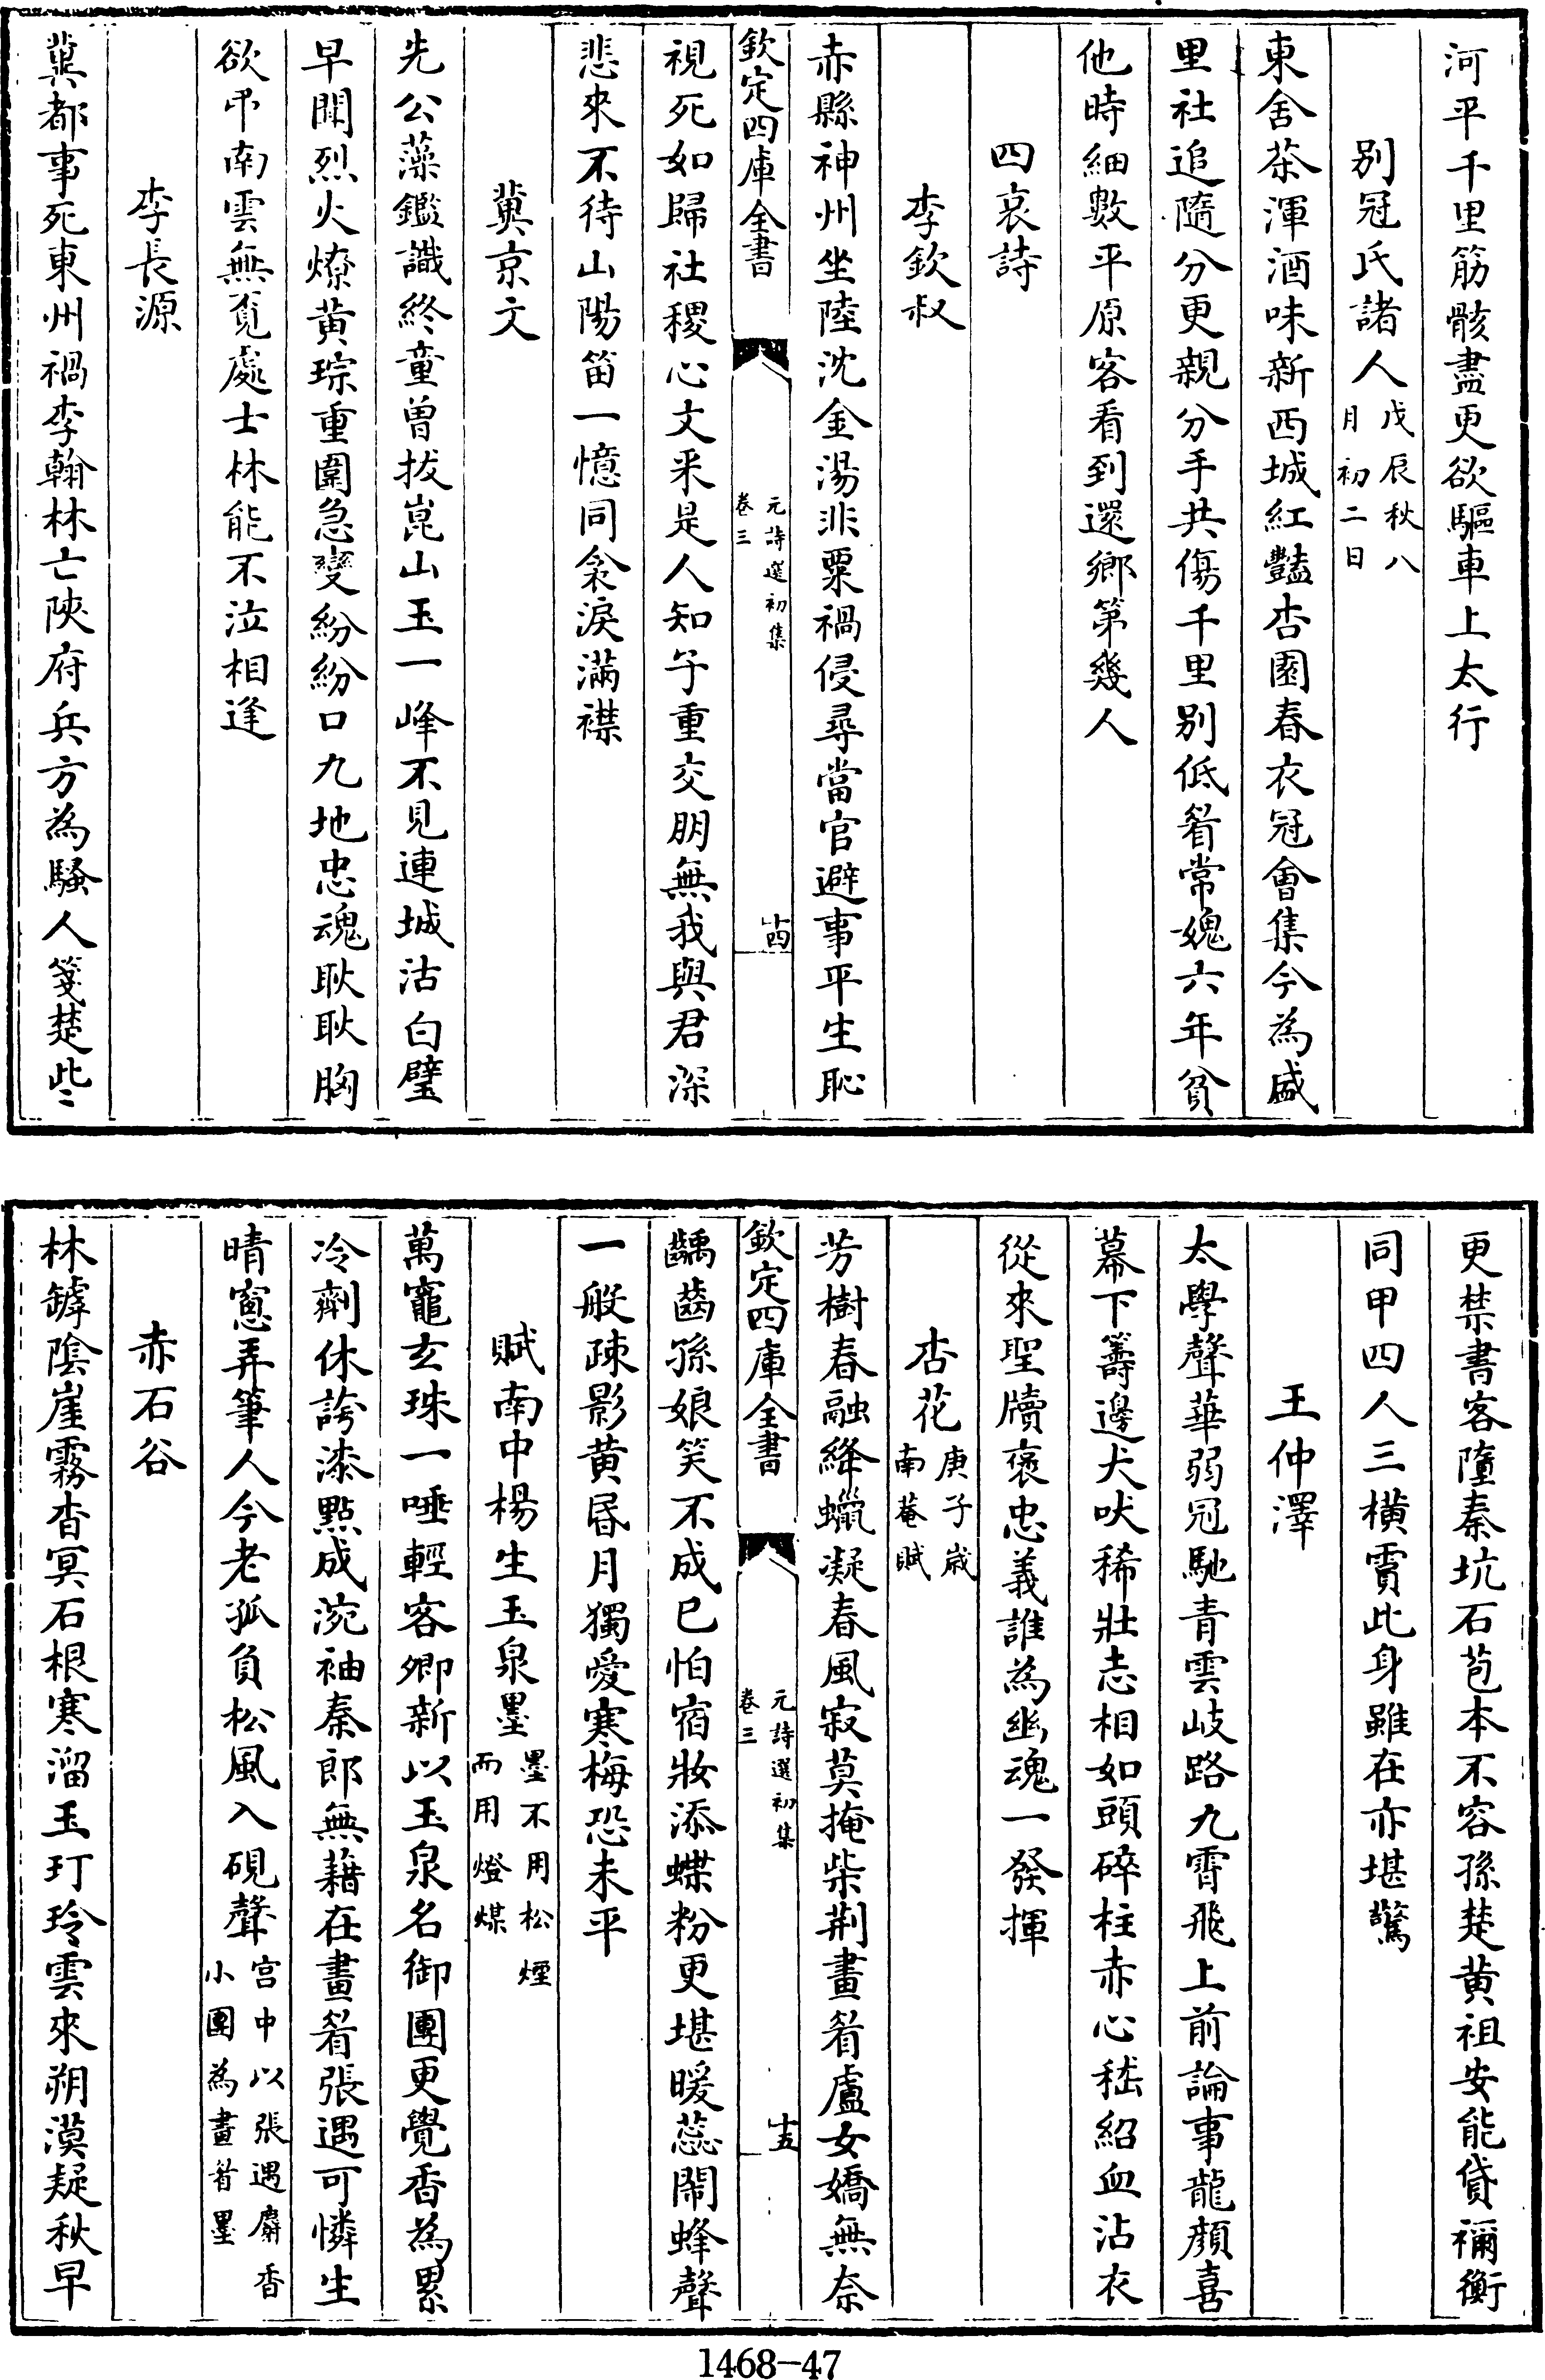 河平千里筋骸盡更欲驅車上太行
别冠氏諸人戊辰秋八
月初二日
東舍茶渾酒味新西城紅豔杏園春衣冠會集今為盛
里社追隨分更親分手共傷千里别低眉常媿六年貧
他時細數平原客看到還鄉第幾人
四哀詩
李欽叔
赤縣神州坐陸沈金湯非粟禍侵尋當官避事平生恥
欽定四庫全書
元詩選初集
卷三
十四
視死如歸社稷心文采是人知子重交朋無我與君深
悲來不待山陽笛一憶同衾淚滿襟
冀京文
先公藻鑑識終童曾拔崑山玉一峰不見連城沽白璧
早聞烈火燎黄琮重圍急變紛紛口九地忠魂耿耿胸
欲弔南雲無覓處士林能不泣相逢
李長源
冀都事死東州禍李翰林亡陜府兵方為騷人箋楚些
更禁書客墮秦坑石苞本不容孫楚黄祖安能貸禰衡
同甲四人三横霣此身雖在亦堪驚
王仲澤
太學聲華弱冠馳青雲岐路九霄飛上前論事龍顔喜
幕下籌邊犬吠稀壯志相如頭碎柱赤心嵇紹血沾衣
從來聖牘褒忠義誰為幽魂一發揮
杏花庚子歲
南菴賦
芳樹春融絳蠟凝春風寂寞掩柴荆畫眉盧女嬌無奈
欽定四庫全書
元詩選初集
卷三
十五
齲齒孫娘笑不成已怕宿妝添蝶粉更堪暖蕊鬧蜂聲
一般疎影黄昬月獨愛寒梅恐未平
賦南中楊生玉泉墨墨不用松煙
而用燈煤
萬竈玄珠一唾輕客卿新以玉泉名御團更覺香為累
冷劑休誇漆點成涴袖秦郎無藉在畫眉張遇可憐生
晴窻弄筆人今老孤負松風入硯聲宫中以張遇麝香
小團為畫眉墨
赤石谷
林罅隂崖霧杳冥石根寒溜玉玎玲雲來朔漠疑秋早
1468-47